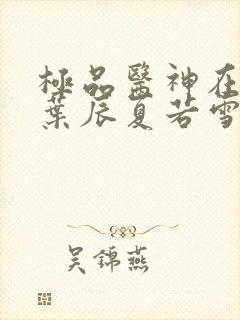 極品醫神在
葉辰夏若雪
吳錦燕